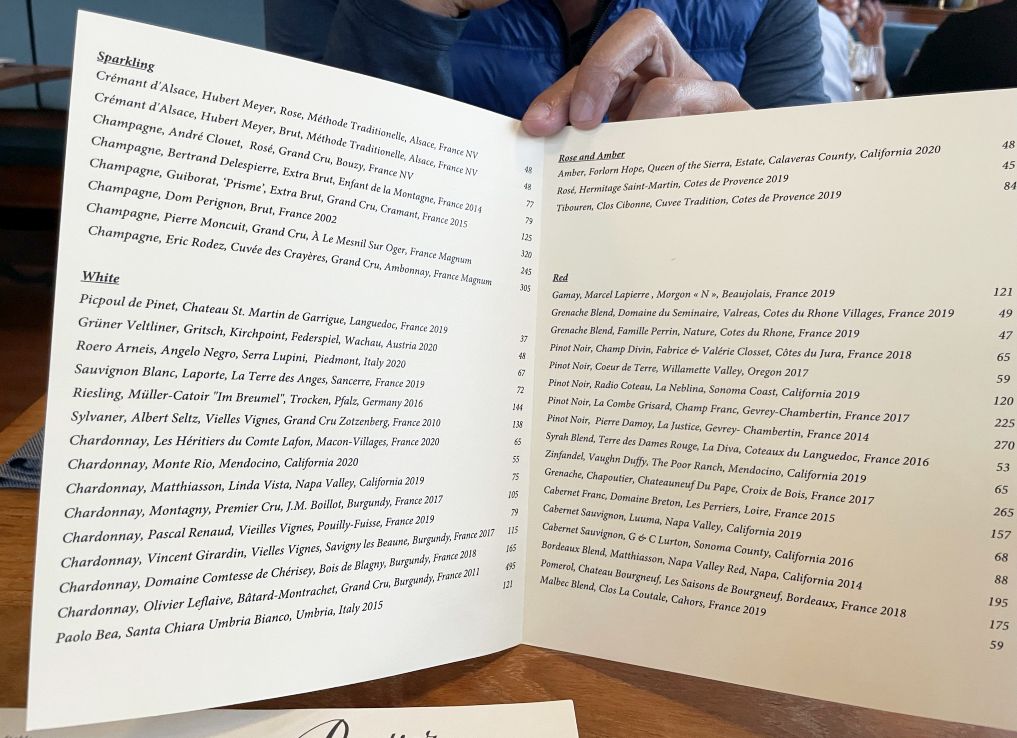 Sparkling
Crémant d'Alsace, Hubert Meyer, Rose, Méthode Traditionelle, Alsace, France NV 48
Crémant d'Alsace, Hubert Meyer, Brut, Méthode Traditionelle, Alsace, France NV 48
Champagne, André Clouet, Rosé, Grand Cru, Bouzy, France NV 77
Champagne, Bertrand Delespierre, Extra Brut, Enfant de la Montagne, France 2014 79
Champagne, Guiborat, 'Prisme', Extra Brut, Grand Cru, Cramant, France 2015 125
Champagne, Dom Perignon, Brut, France 2002 320
Champagne, Pierre Moncuit, Grand Cru, À Le Mesnil Sur Oger, France Magnum 245
Champagne, Eric Rodez, Cuvée des Crayères, Grand Cru, Ambonnay, France Magnum 305
White
Picpoul de Pinet, Chateau St. Martin de Garrigue, Languedoc, France 2019 37
Grüner Veltliner, Gritsch, Kirchpoint, Federspiel, Wachau, Austria 2020 48
Roero Arneis, Angelo Negro, Serra Lupini, Piedmont, Italy 2020 67
Sauvignon Blanc, Laporte, La Terre des Anges, Sancerre, France 2019 72
Riesling, Müller-Catoir "Im Breumel", Trocken, Pfalz, Germany 2016 144
Sylvaner, Albert Seltz, Vielles Vignes, Grand Cru Zotzenberg, France 2010 138
Chardonnay, Les Héritiers du Comte Lafon, Macon-Villages, France 2020 65
Chardonnay, Monte Rio, Mendocino, California 2020 55
Chardonnay, Matthiasson, Linda Vista, Napa Valley, California 2019 75
Chardonnay, Montagny, Premier Cru, J.M. Boillot, Burgundy, France 2017 105
Chardonnay, Pascal Renaud, Vieilles Vignes, Pouilly-Fuisse, France 2019 79
Chardonnay, Vincent Girardin, Vielles Vignes, Savigny les Beaune, Burgundy, France 2017 115
Chardonnay, Domaine Comtesse de Chérisey, Bois de Blagny, Burgundy, France 2018 165
Chardonnay, Olivier Leflaive, Bâtard-Montrachet, Grand Cru, Burgundy, France 2011 495
Paolo Bea, Santa Chiara Umbria Bianco, Umbria, Italy 2015 121
Rose and Amber
Amber, Forlorn Hope, Queen of the Sierra, Estate, Calaveras County, California 2020 48
Rosé, Hermitage Saint-Martin, Cotes de Provence 2019 45
Tibouren, Clos Cibonne, Cuvee Tradition, Cotes de Provence 2019 84
Red
Gamay, Marcel Lapierre , Morgon « N », Beaujolais, France 2019 121
Grenache Blend, Domaine du Seminaire, Valreas, Cotes du Rhone Villages, France 2019 49
Grenache Blend, Famille Perrin, Nature, Cotes du Rhone, France 2019 47
Pinot Noir, Champ Divin, Fabrice & Valérie Closset, Côtes du Jura, France 2018 65
Pinot Noir, Coeur de Terre, Willamette Valley, Oregon 2017 59
Pinot Noir, Radio Coteau, La Neblina, Sonoma Coast, California 2019 120
Pinot Noir, La Combe Grisard, Champ Franc, Gevrey-Chambertin, France 2017 225
Pinot Noir, Pierre Damoy, La Justice, Gevrey- Chambertin, France 2014 270
Syrah Blend, Terre des Dames Rouge, La Diva, Coteaux du Languedoc, France 2016 53
Zinfandel, Vaughn Duffy, The Poor Ranch, Mendocino, California 2019 65
Grenache, Chapoutier, Chateauneuf Du Pape, Croix de Bois, France 2017 265
Cabernet Franc, Domaine Breton, Les Perriers, Loire, France 2015 157
Cabernet Sauvignon, Luuma, Napa Valley, California 2019 68
Cabernet Sauvignon, G & C Lurton, Sonoma County, California 2016 88
Bordeaux Blend, Matthiasson, Napa Valley Red, Napa, California 2014 195
Pomerol, Chateau Bourgneuf, Les Saisons de Bourgneuf, Bordeaux, France 2018 175
Malbec Blend, Clos La Coutale, Cahors, France 2019 59